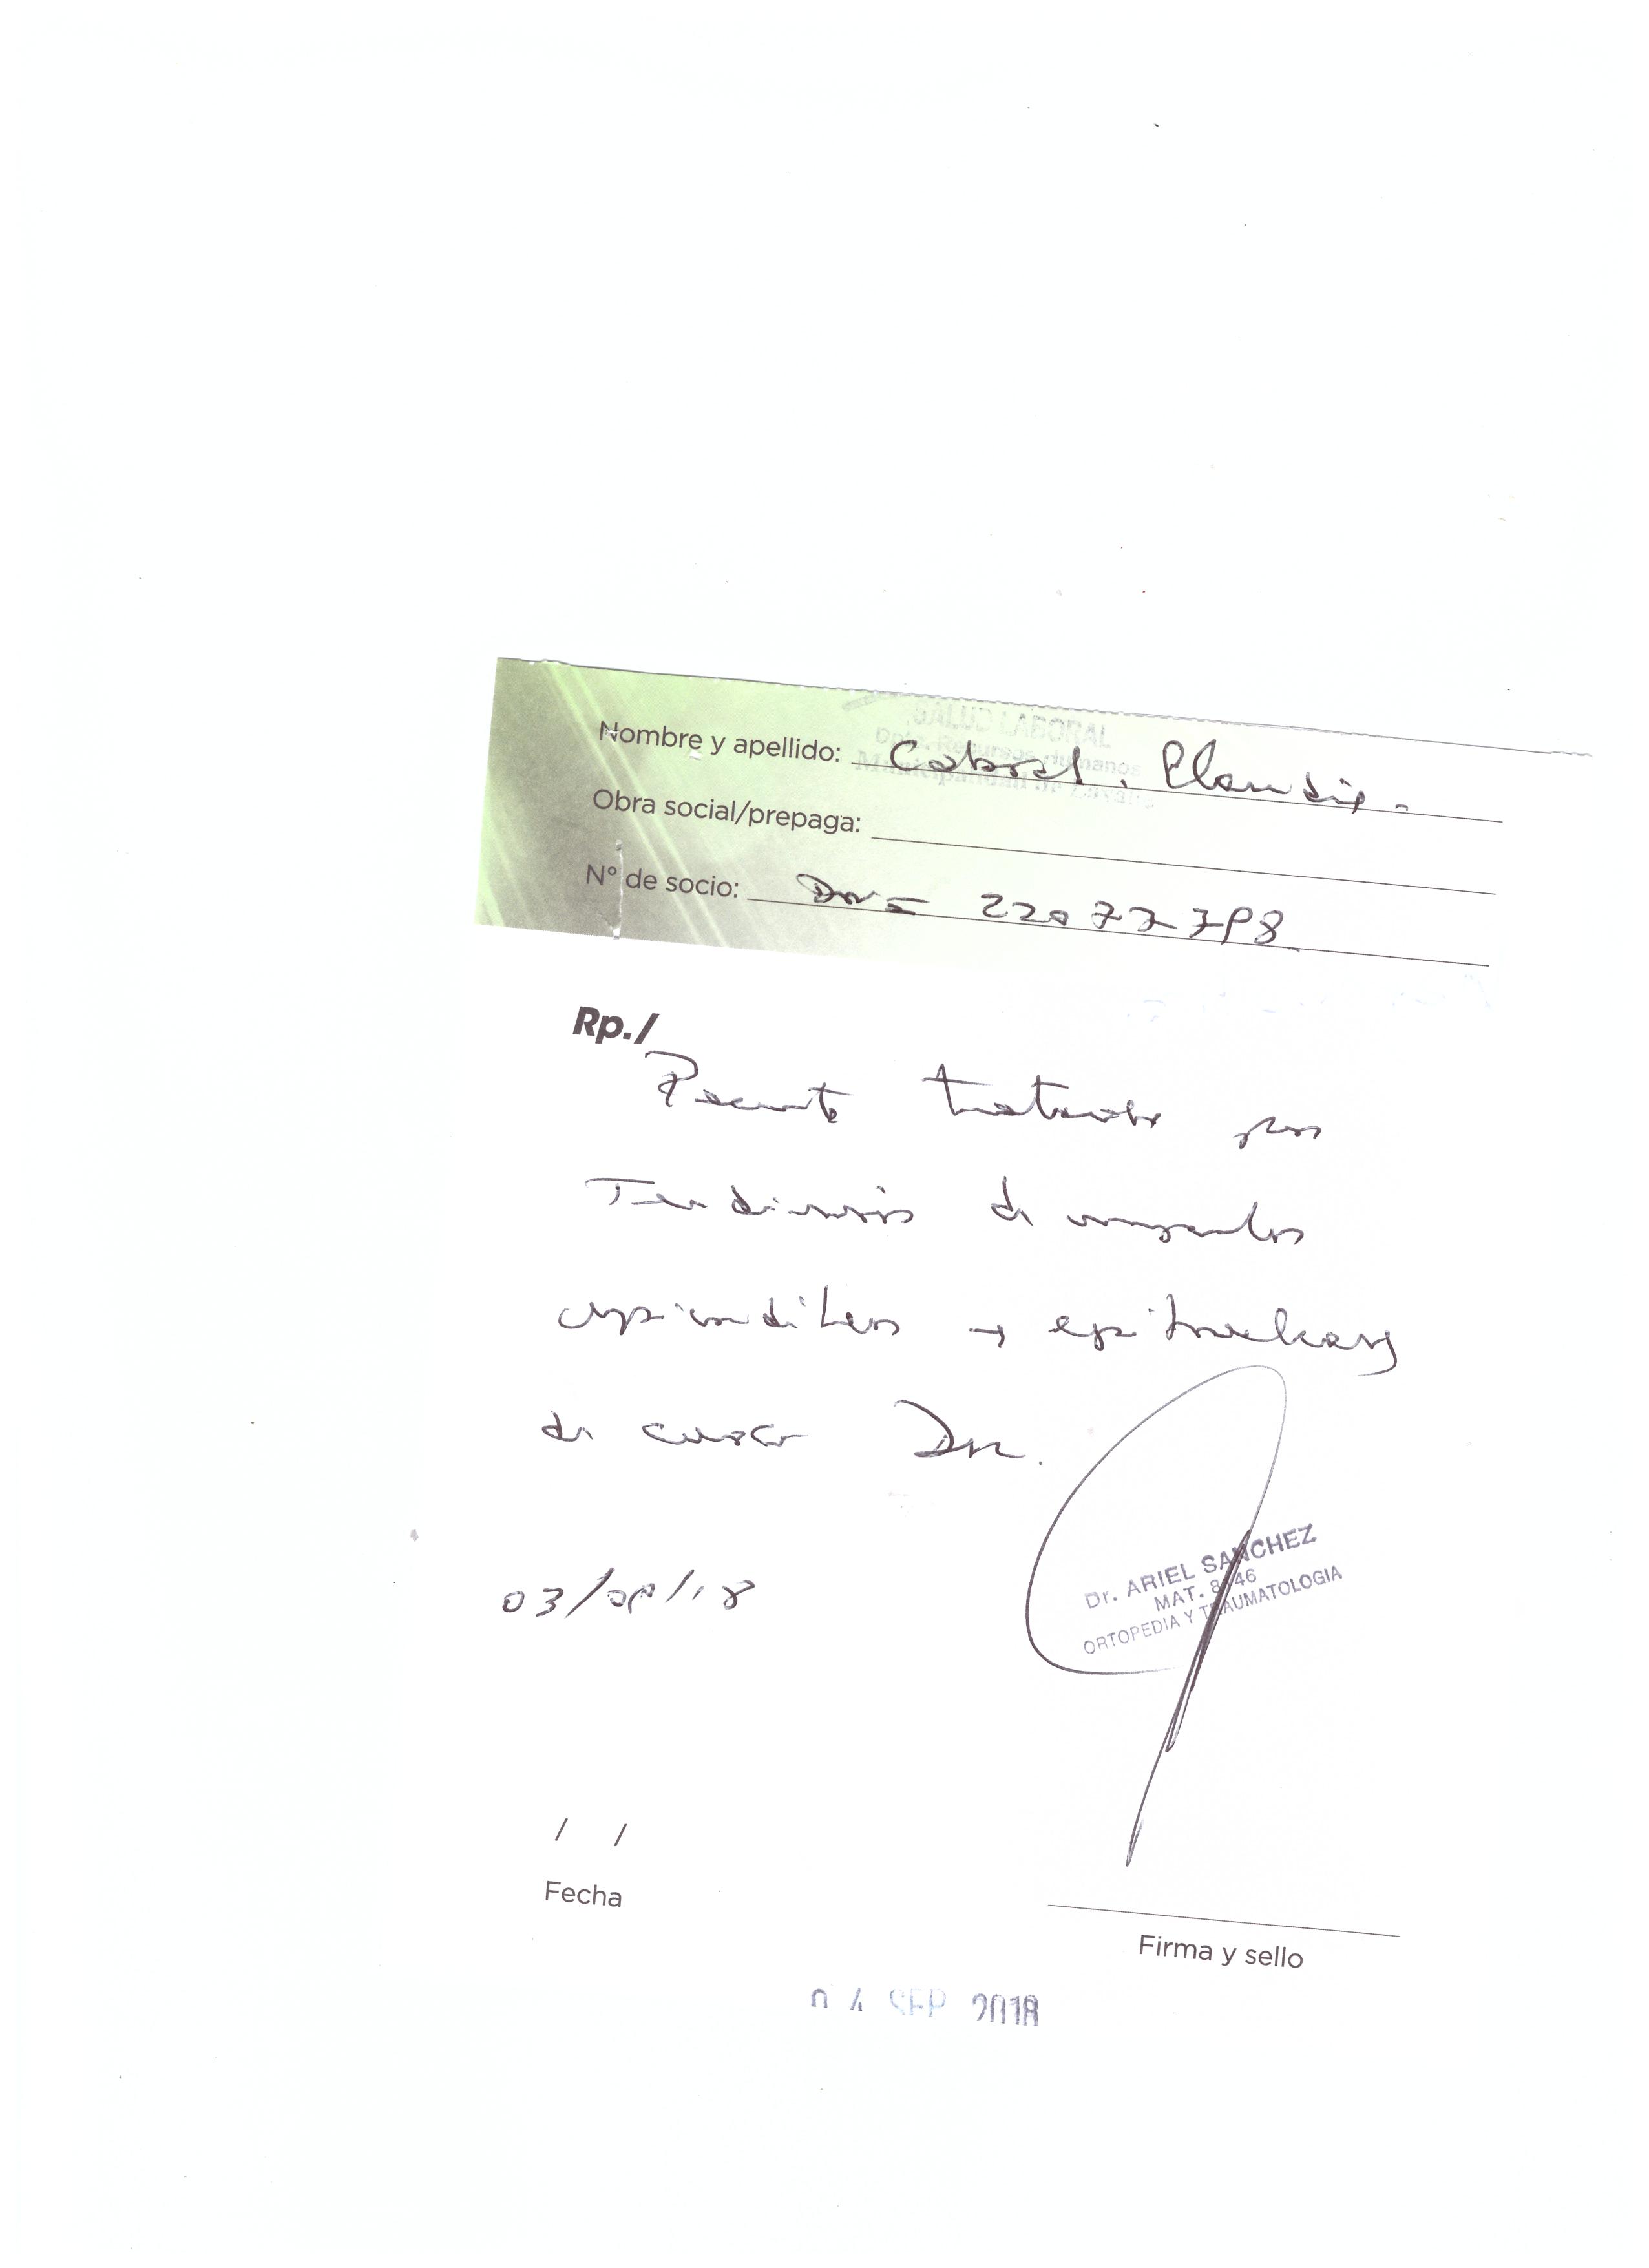 SALUD LABORAL
Dpto. Recursos Humanos
Municipalidad de
Nombre y apellido: Cabral, Claudia.
Obra social/prepaga:
N° de socio: DNI 22077798
Rp./
Paciente tratado por
Tendinosis de musculos
epicondileos y epitrocleares
de codo Der.
03/09/18
Dr. ARIEL SANCHEZ
MAT.
ORTOPEDIA Y TRAUMATOLOGIA
/ /
Fecha
Firma y sello
04 SEP 2018